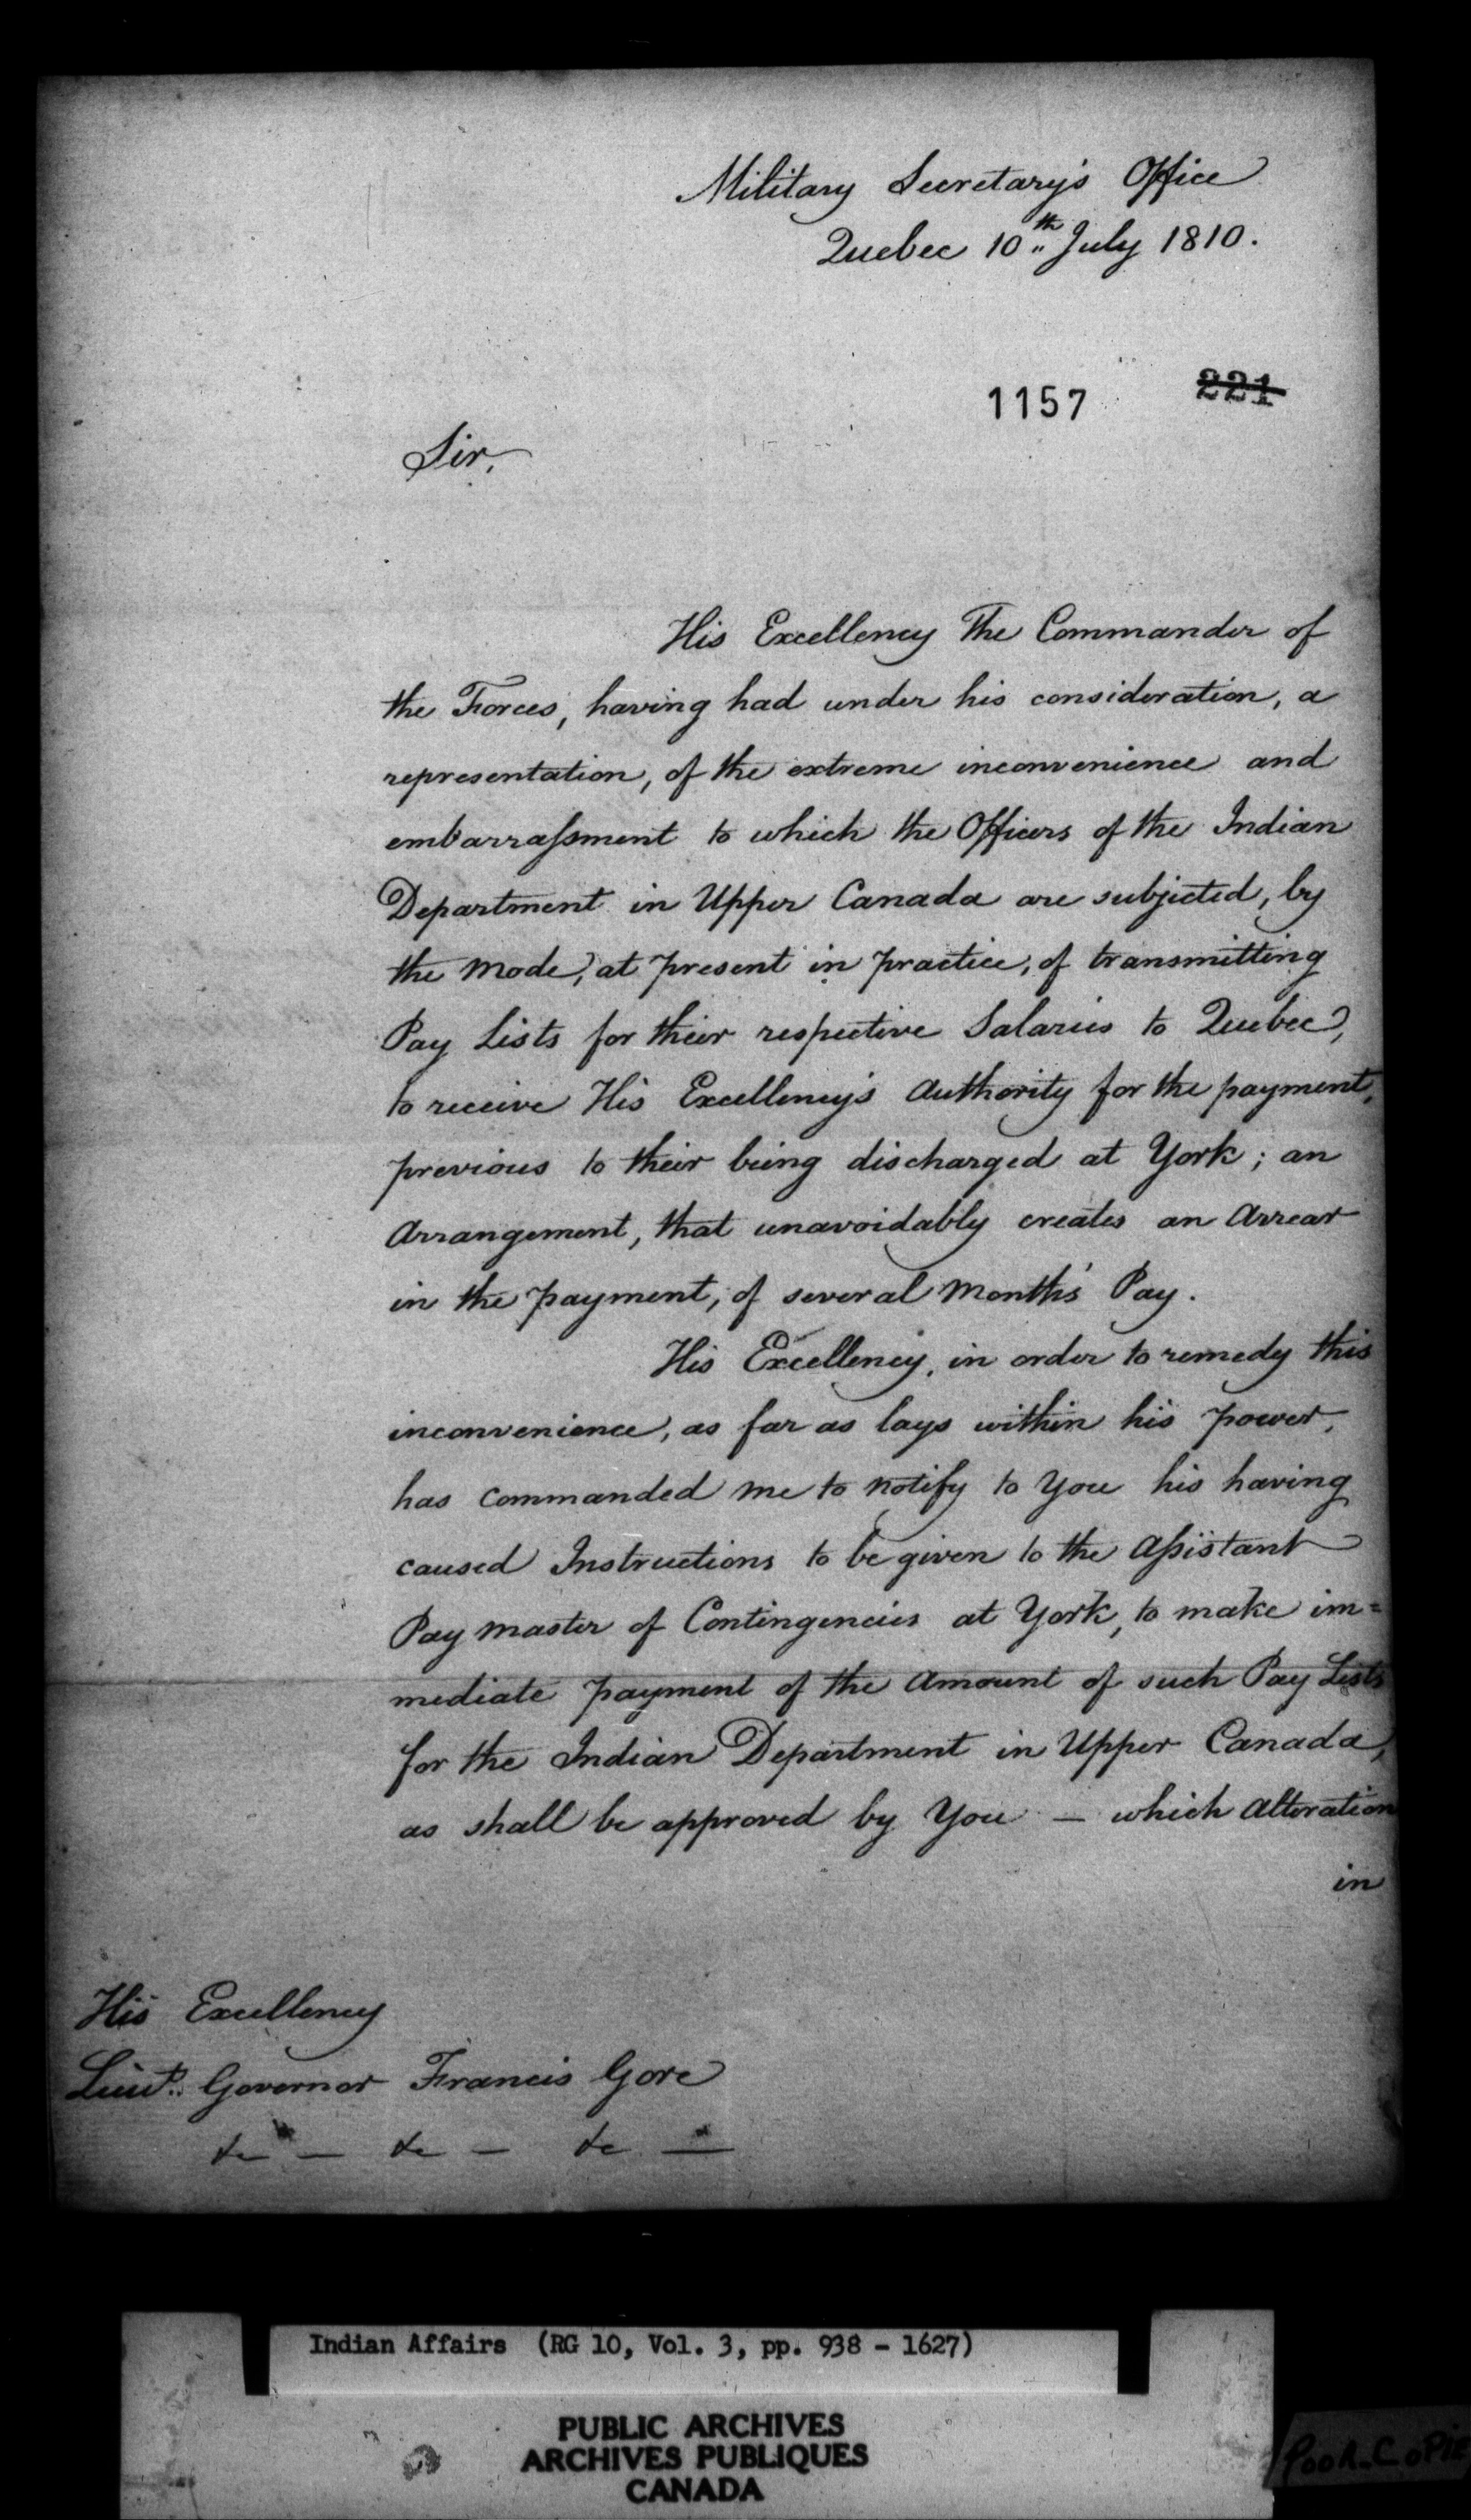 Military Secretary's Office
Quebec 10th July 1810.
1157
221
Sir,
His Excellency The Commander of
the Forces, having had under his consideration, a
representation, of the extreme inconvenience and
embarraſsment to which the Officers of the Indian
Department in Upper Canada are subjected, by
the Mode, at present in practice, of transmitting
Pay Lists for their respective Salaries to Quebec,
to receive His Excellency's Authority for the payment,
previous to their being discharged at York; an
Arrangement, that unavoidably creates an Arrear
in the payment, of several Months' Pay.
His Excellency, in order to remedy this
inconvenience, as far as lays within his power,
has commanded me to notify to You his having
caused Instructions to be given to the Aſsistant
Paymaster of Contingencies at York, to make im=
mediate payment of the Amount of such Pay Lists
for the Indian Department in Upper Canada,
as shall be approved by You — which Alteration
in
His Excellency
Lieut. Governor Francis Gore
&c — &c — &c —
Indian Affairs (RG 10, Vol. 3, pp. 938 - 1627)
PUBLIC ARCHIVES
ARCHIVES PUBLIQUES
CANADA
POOR COPIE